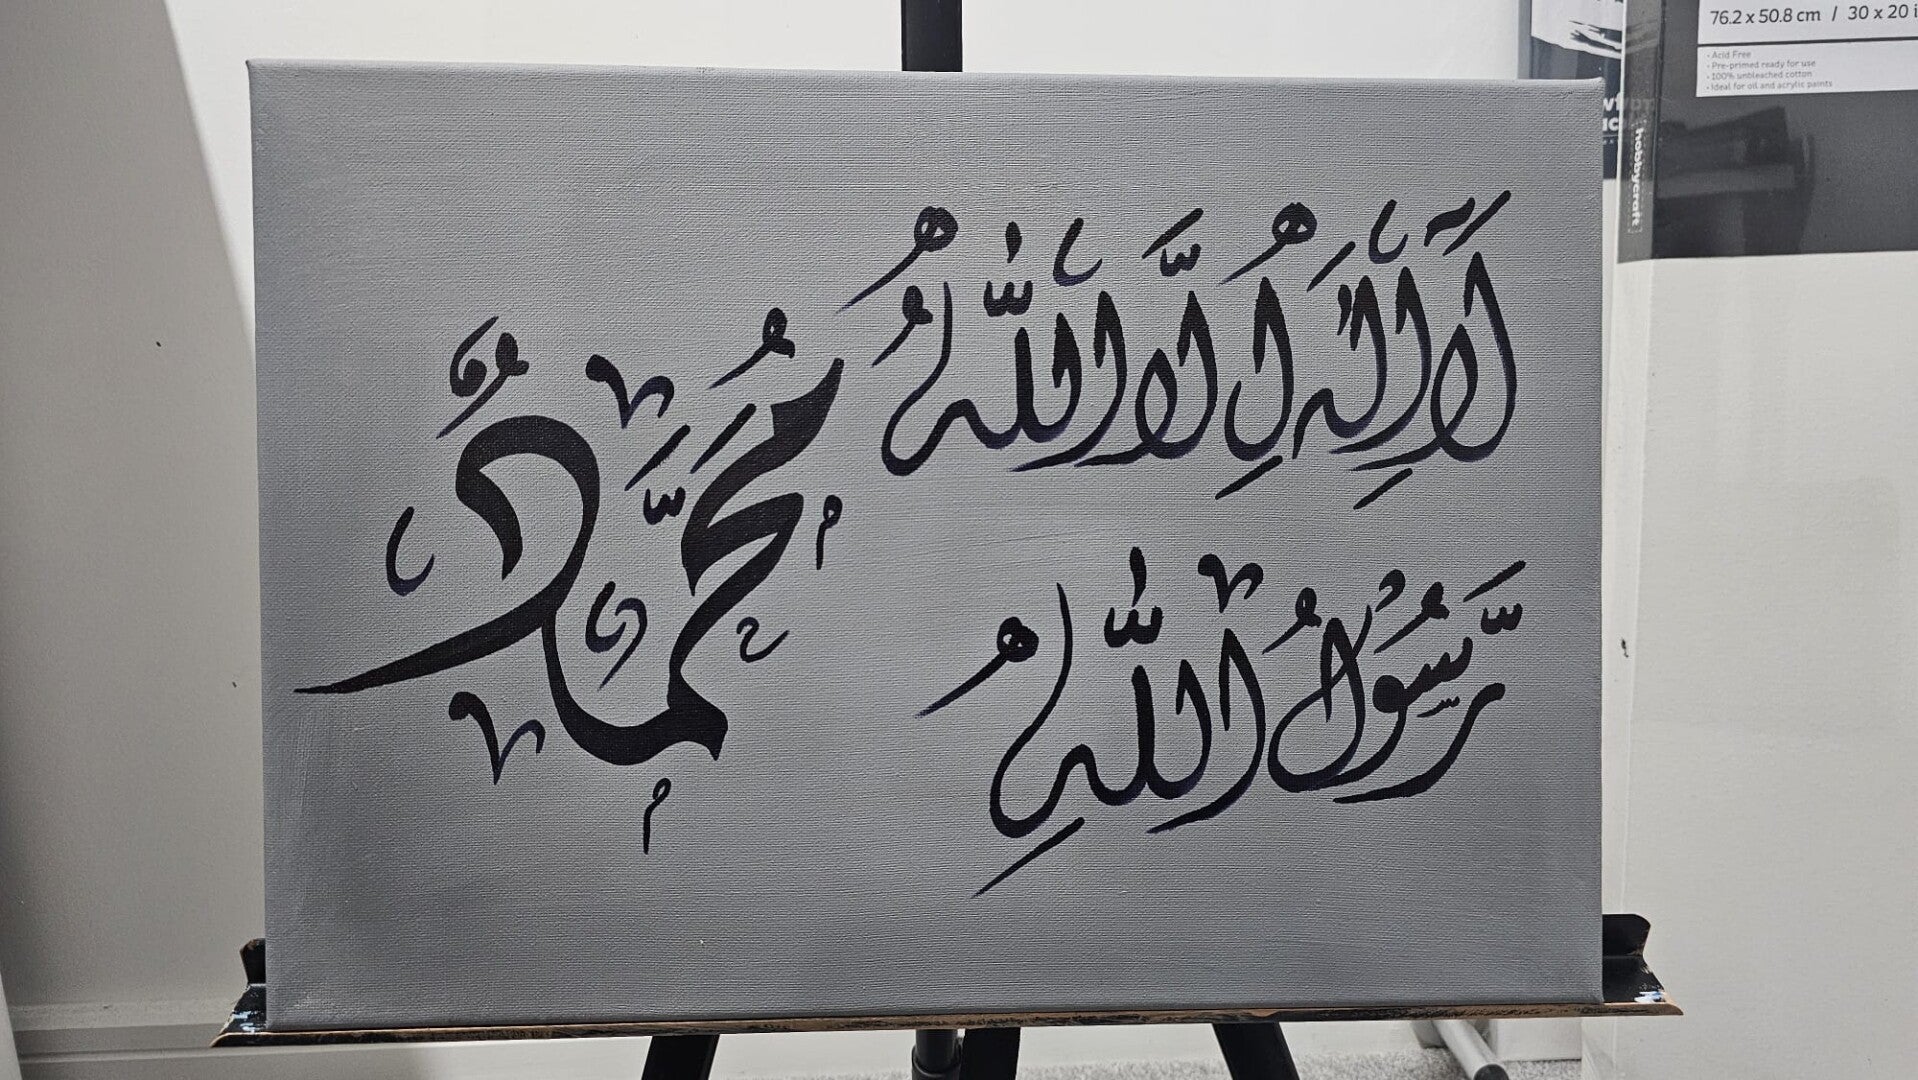 لَا إِلَٰهَ إِلَّا اللَّهُ
مُحَمَّدٌ
رَّسُولُ اللَّهِ
76.2 x 50.8 cm / 30 x 20 i
• Acid Free
• Pre-primed ready for use
• 100% unbleached cotton
• Ideal for oil and acrylic paints
hobbycraft